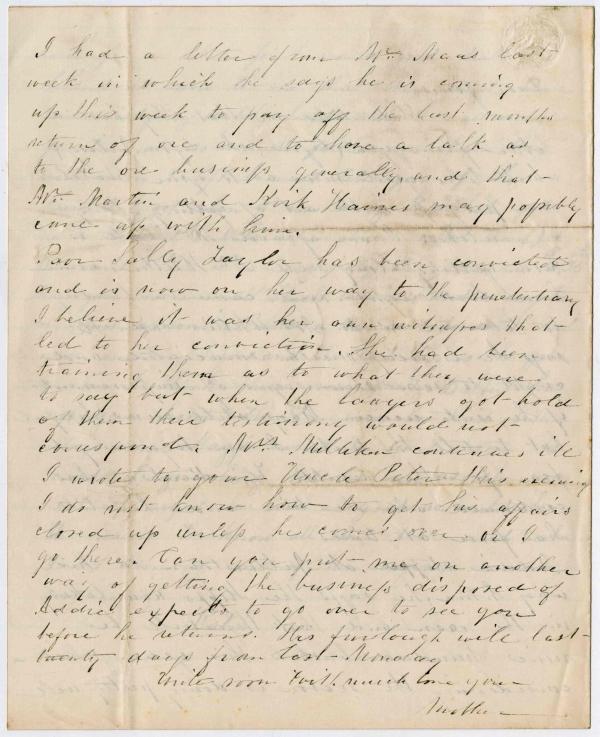 I had a letter from Mr. Maus last
week in which he says he is coming
up this week to pay off the last months
return of ore and to have a talk as
to the ore business generally, and that
Mr. Martin and Kirk Haines may possibly
come up with him.
Poor Sally Taylor has been convicted
and is now on her way to the penetentiary
I believe it was her own witnesses that
led to her conviction. She had been
training them as to what they were
to say but when the lawyers got hold
of them their testimony would not
correspond. Mrs. Millikan continues ill
I wrote to your Uncle Peter this evening
I do not know how to get his affairs
closed up unless he comes over or I
go there. Can you put me on another
way of getting the business disposed of
Addie expects to go over to see you
before he returns. His furlough will last
twenty days from last Monday
Write soon With much love your
Mother